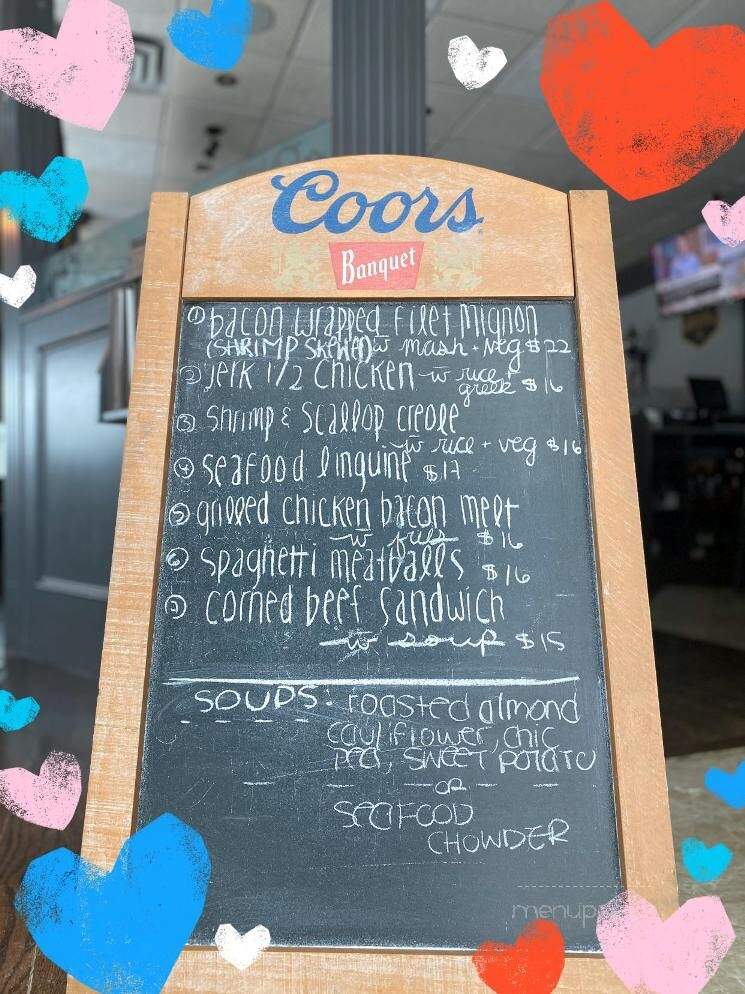 Coors
Banquet
① bacon wrapped filet mignon
(SHRIMP SKEWER) w mash + veg $22
② Jerk 1/2 Chicken w rice + greek $16
③ Shrimp & Scallop creole
w rice + veg $16
④ seafood linguine $17
⑤ grilled chicken bacon melt
w fries $16
⑥ spaghetti meatballs $16
⑦ corned beef sandwich
w soup $15
SOUPS: roasted almond
cauliflower, chic
pea, SWEET POTATO
OR
SEAFOOD
CHOWDER